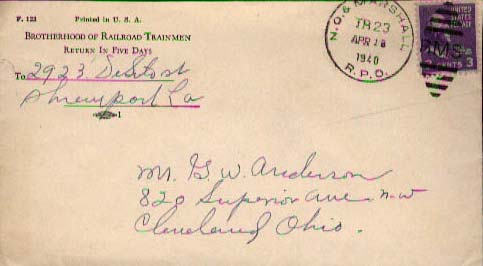 F. 123 Printed in U. S. A.
BROTHERHOOD OF RAILROAD TRAINMEN
RETURN IN FIVE DAYS
To 2923 DeSoto st
Shreveport La
1
N.O. & MARSHALL
TR23
APR 18
1940
R.P.O.
UNITED STATES
RMS
CENTS 3
Mr. G. W. Anderson
820 Superior Ave n-w
Cleveland Ohio.